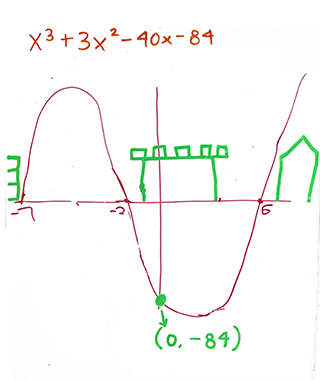 x³ + 3x² - 40x - 84
-7
-2
6
(0, -84)